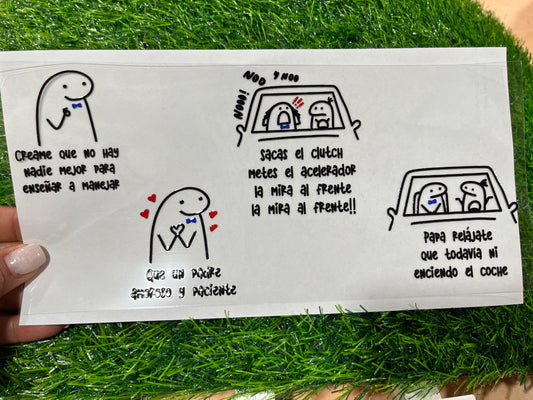 CREAME QUE NO HAY
NADIE MEJOR PARA
ENSEÑAR A MANEJAR
QUE UN PADRE
AMOROSO Y PACIENTE
NOOO! NOO Y NOO
!!!
SACAS EL CLUTCH
METES EL ACELERADOR
LA MIRA AL FRENTE
LA MIRA AL FRENTE!!
PAPA RELÁJATE
QUE TODAVIA NI
ENCIENDO EL COCHE